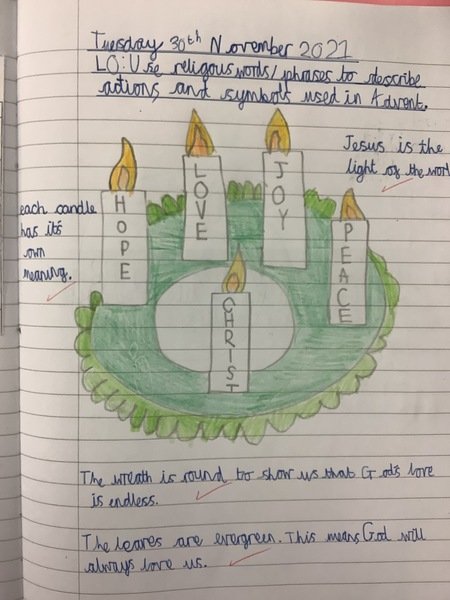 Tuesday 30th November 2021
LO: Use religous words/phrases to describe
actions and symbols used in Advent.
Jesus is the
light of the worl
each candle
has it's
own
meaning.
HOPE
LOVE
JOY
PEACE
CHRIST
The wreath is round to show us that God's love
is endless.
The leaves are evergreen. This means God will
always love us.